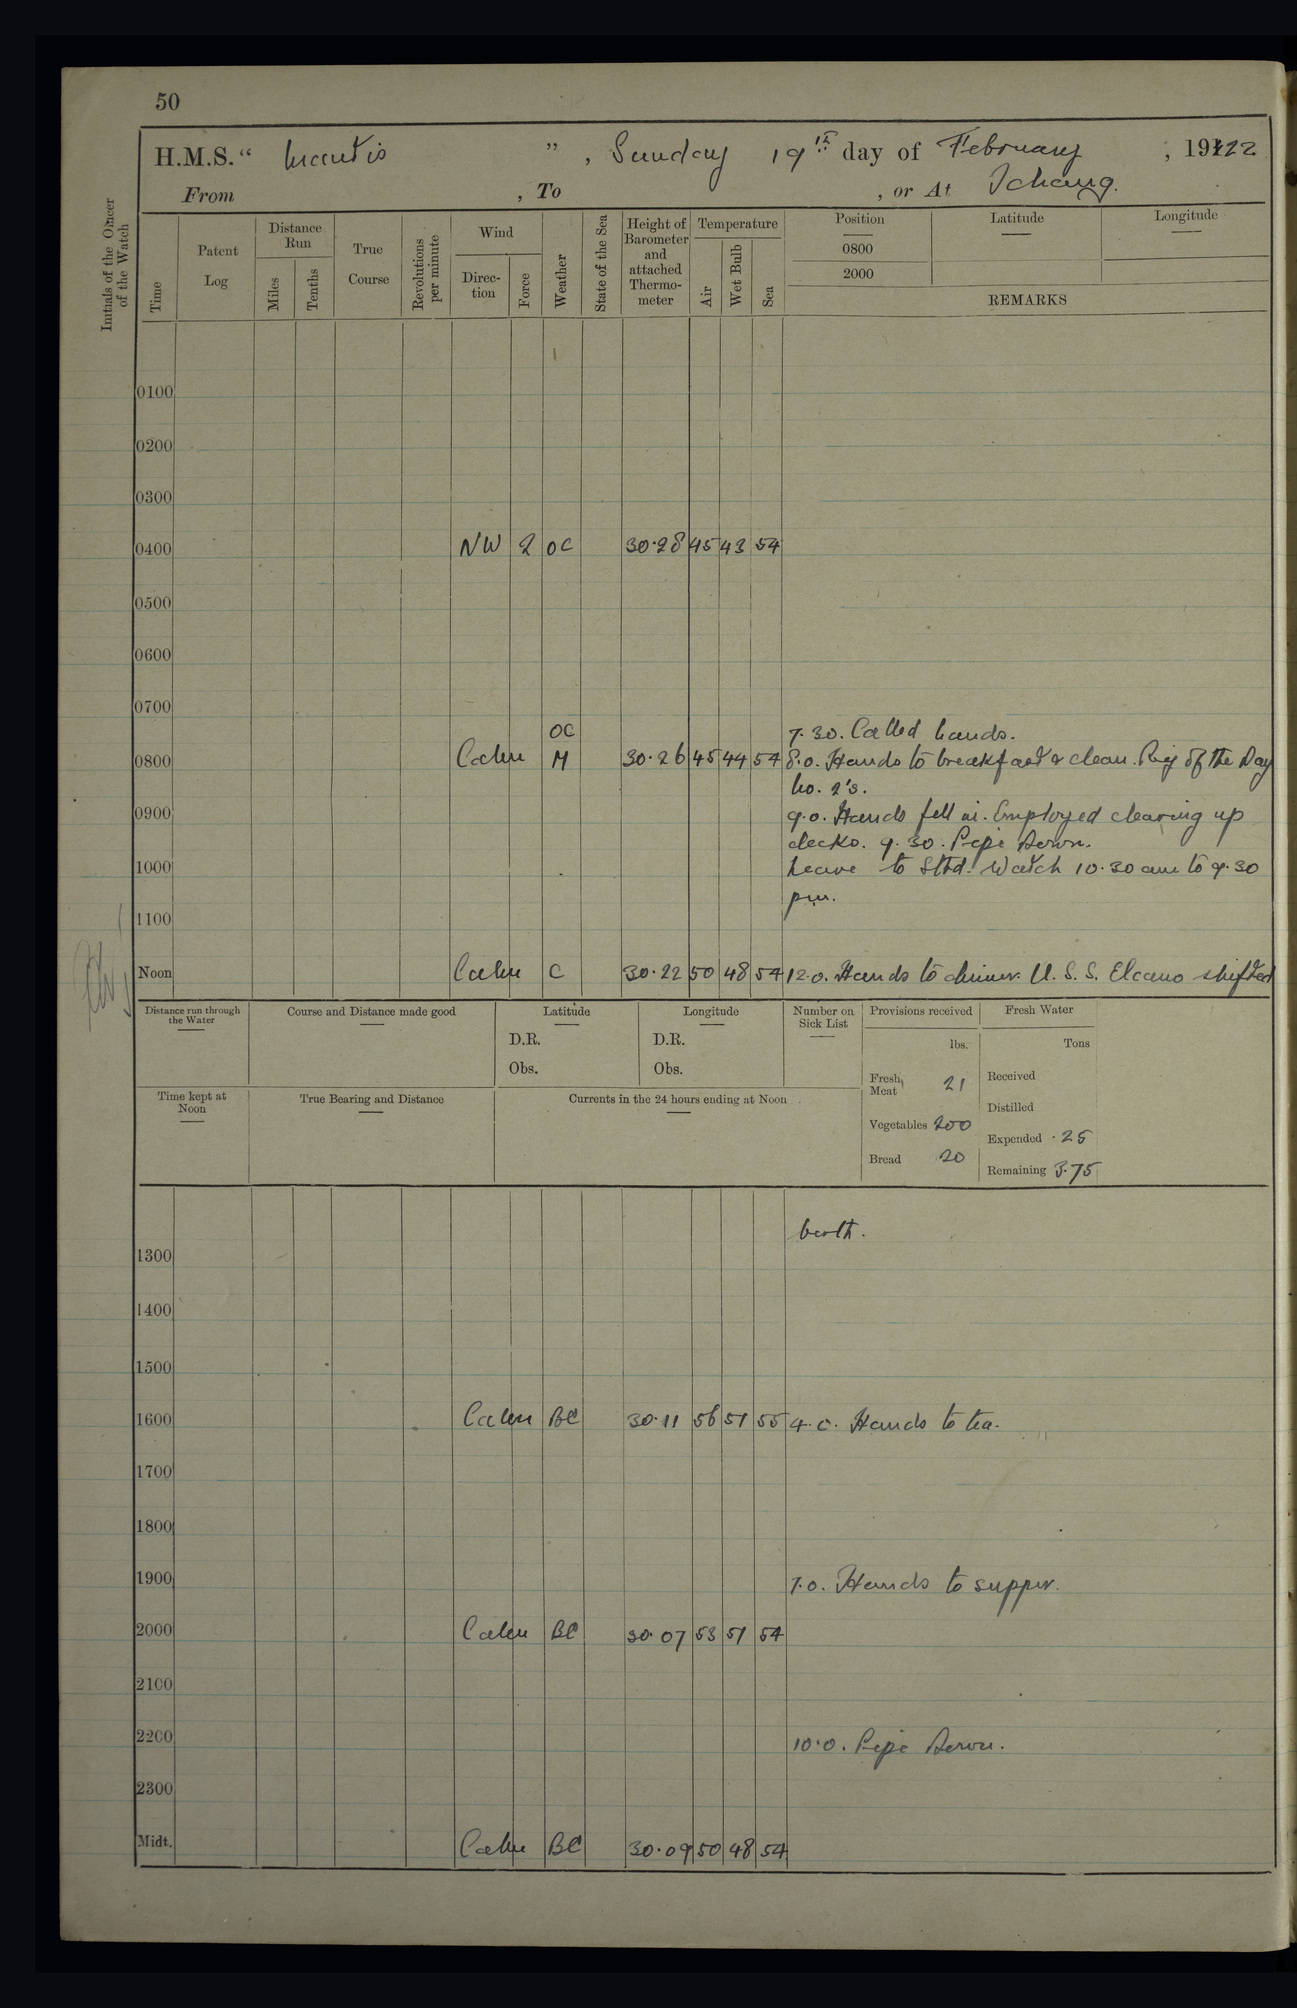 50
H.M.S. “ Mantis ” , Sunday 19th day of February , 1922
From , To , or At Ichang.
Initials of the Officer of the Watch
Time
Patent Log
Distance Run
Miles
Tenths
True Course
Revolutions per minute
Wind
Direction
Force
Weather
State of the Sea
Height of Barometer and attached Thermometer
Temperature
Air
Wet Bulb
Sea
Position
Latitude
Longitude
0800
2000
REMARKS
0100
0200
0300
0400 NW 2 OC 30.28 45 43 54
0500
0600
0700
OC 7.30. Called hands.
0800 Calm M 30.26 45 44 54 8.0. Hands to breakfast & clean. Rig of the Day
No. 2's.
0900 9.0. Hands fell in. Employed clearing up
decks. 9.30. Pipe Down.
1000 Leave to Stbd. Watch 10.30 am to 9.30
pm.
1100
Noon Calm C 30.22 50 48 54 12.0. Hands to dinner. U.S.S. Elcano shifted
Distance run through the Water
Course and Distance made good
Latitude
D.R.
Obs.
Longitude
D.R.
Obs.
Number on Sick List
Provisions received
lbs.
Fresh Meat 21
Vegetables 200
Bread 20
Fresh Water
Tons
Received
Distilled
Expended .25
Remaining 3.75
Time kept at Noon
True Bearing and Distance
Currents in the 24 hours ending at Noon
berth.
1300
1400
1500
1600 Calm BC 30.11 56 51 55 4.0. Hands to tea.
1700
1800
1900 7.0. Hands to supper.
2000 Calm BC 30.07 53 51 54
2100
2200 10.0. Pipe Down.
2300
Midt. Calm BC 30.09 50 48 54